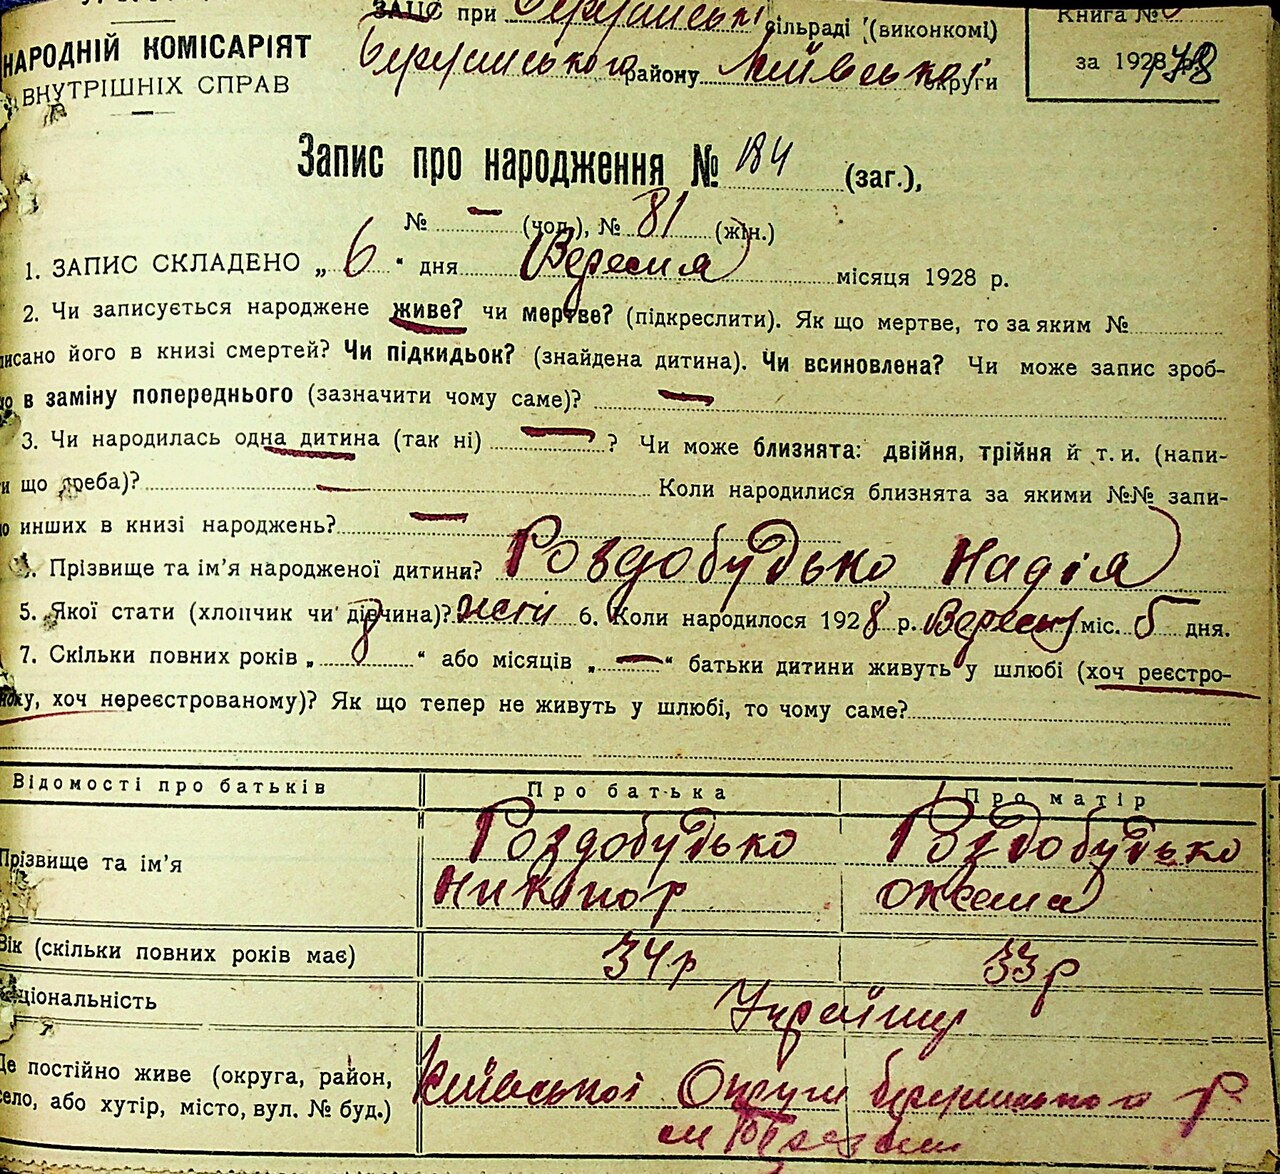 ЗАПС при сільраді (виконкомі)
Книга №
НАРОДНІЙ КОМІСАРІЯТ
ВНУТРІШНІХ СПРАВ
району Київської округи
за 1928
Запис про народження № 184 (заг.),
№ — (чол.), № 81 (жін.)
1. ЗАПИС СКЛАДЕНО „ 6 “ дня Вересня місяця 1928 р.
2. Чи записується народжене живе? чи мертве? (підкреслити). Як що мертве, то за яким №
писано його в книзі смертей? Чи підкидьок? (знайдена дитина). Чи всиновлена? Чи може запис зроб-
о в заміну попереднього (зазначити чому саме)? —
3. Чи народилась одна дитина (так ні) — ? Чи може близнята: двійня, трійня й т. и. (напи-
и що треба)? — Коли народилися близнята за якими №№ запи-
о инших в книзі народжень? —
Прізвище та ім’я народженої дитини? Роздобудько Надія
5. Якої стати (хлопчик чи дівчина)? 6. Коли народилося 1928 р. Вересня міс. 5 дня.
7. Скільки повних років „ 8 “ або місяців „ — “ батьки дитини живуть у шлюбі (хоч реєстро-
ку, хоч нереєстрованому)? Як що тепер не живуть у шлюбі, то чому саме?
Відомості про батьків Про батька Про матір
Прізвище та ім’я Роздобудько Роздобудько
Никіпор Оксана
Вік (скільки повних років має) 34 р 33 р
ціональність Українці
Де постійно живе (округа, район, Київської Округи р.
село, або хутір, місто, вул. № буд.)